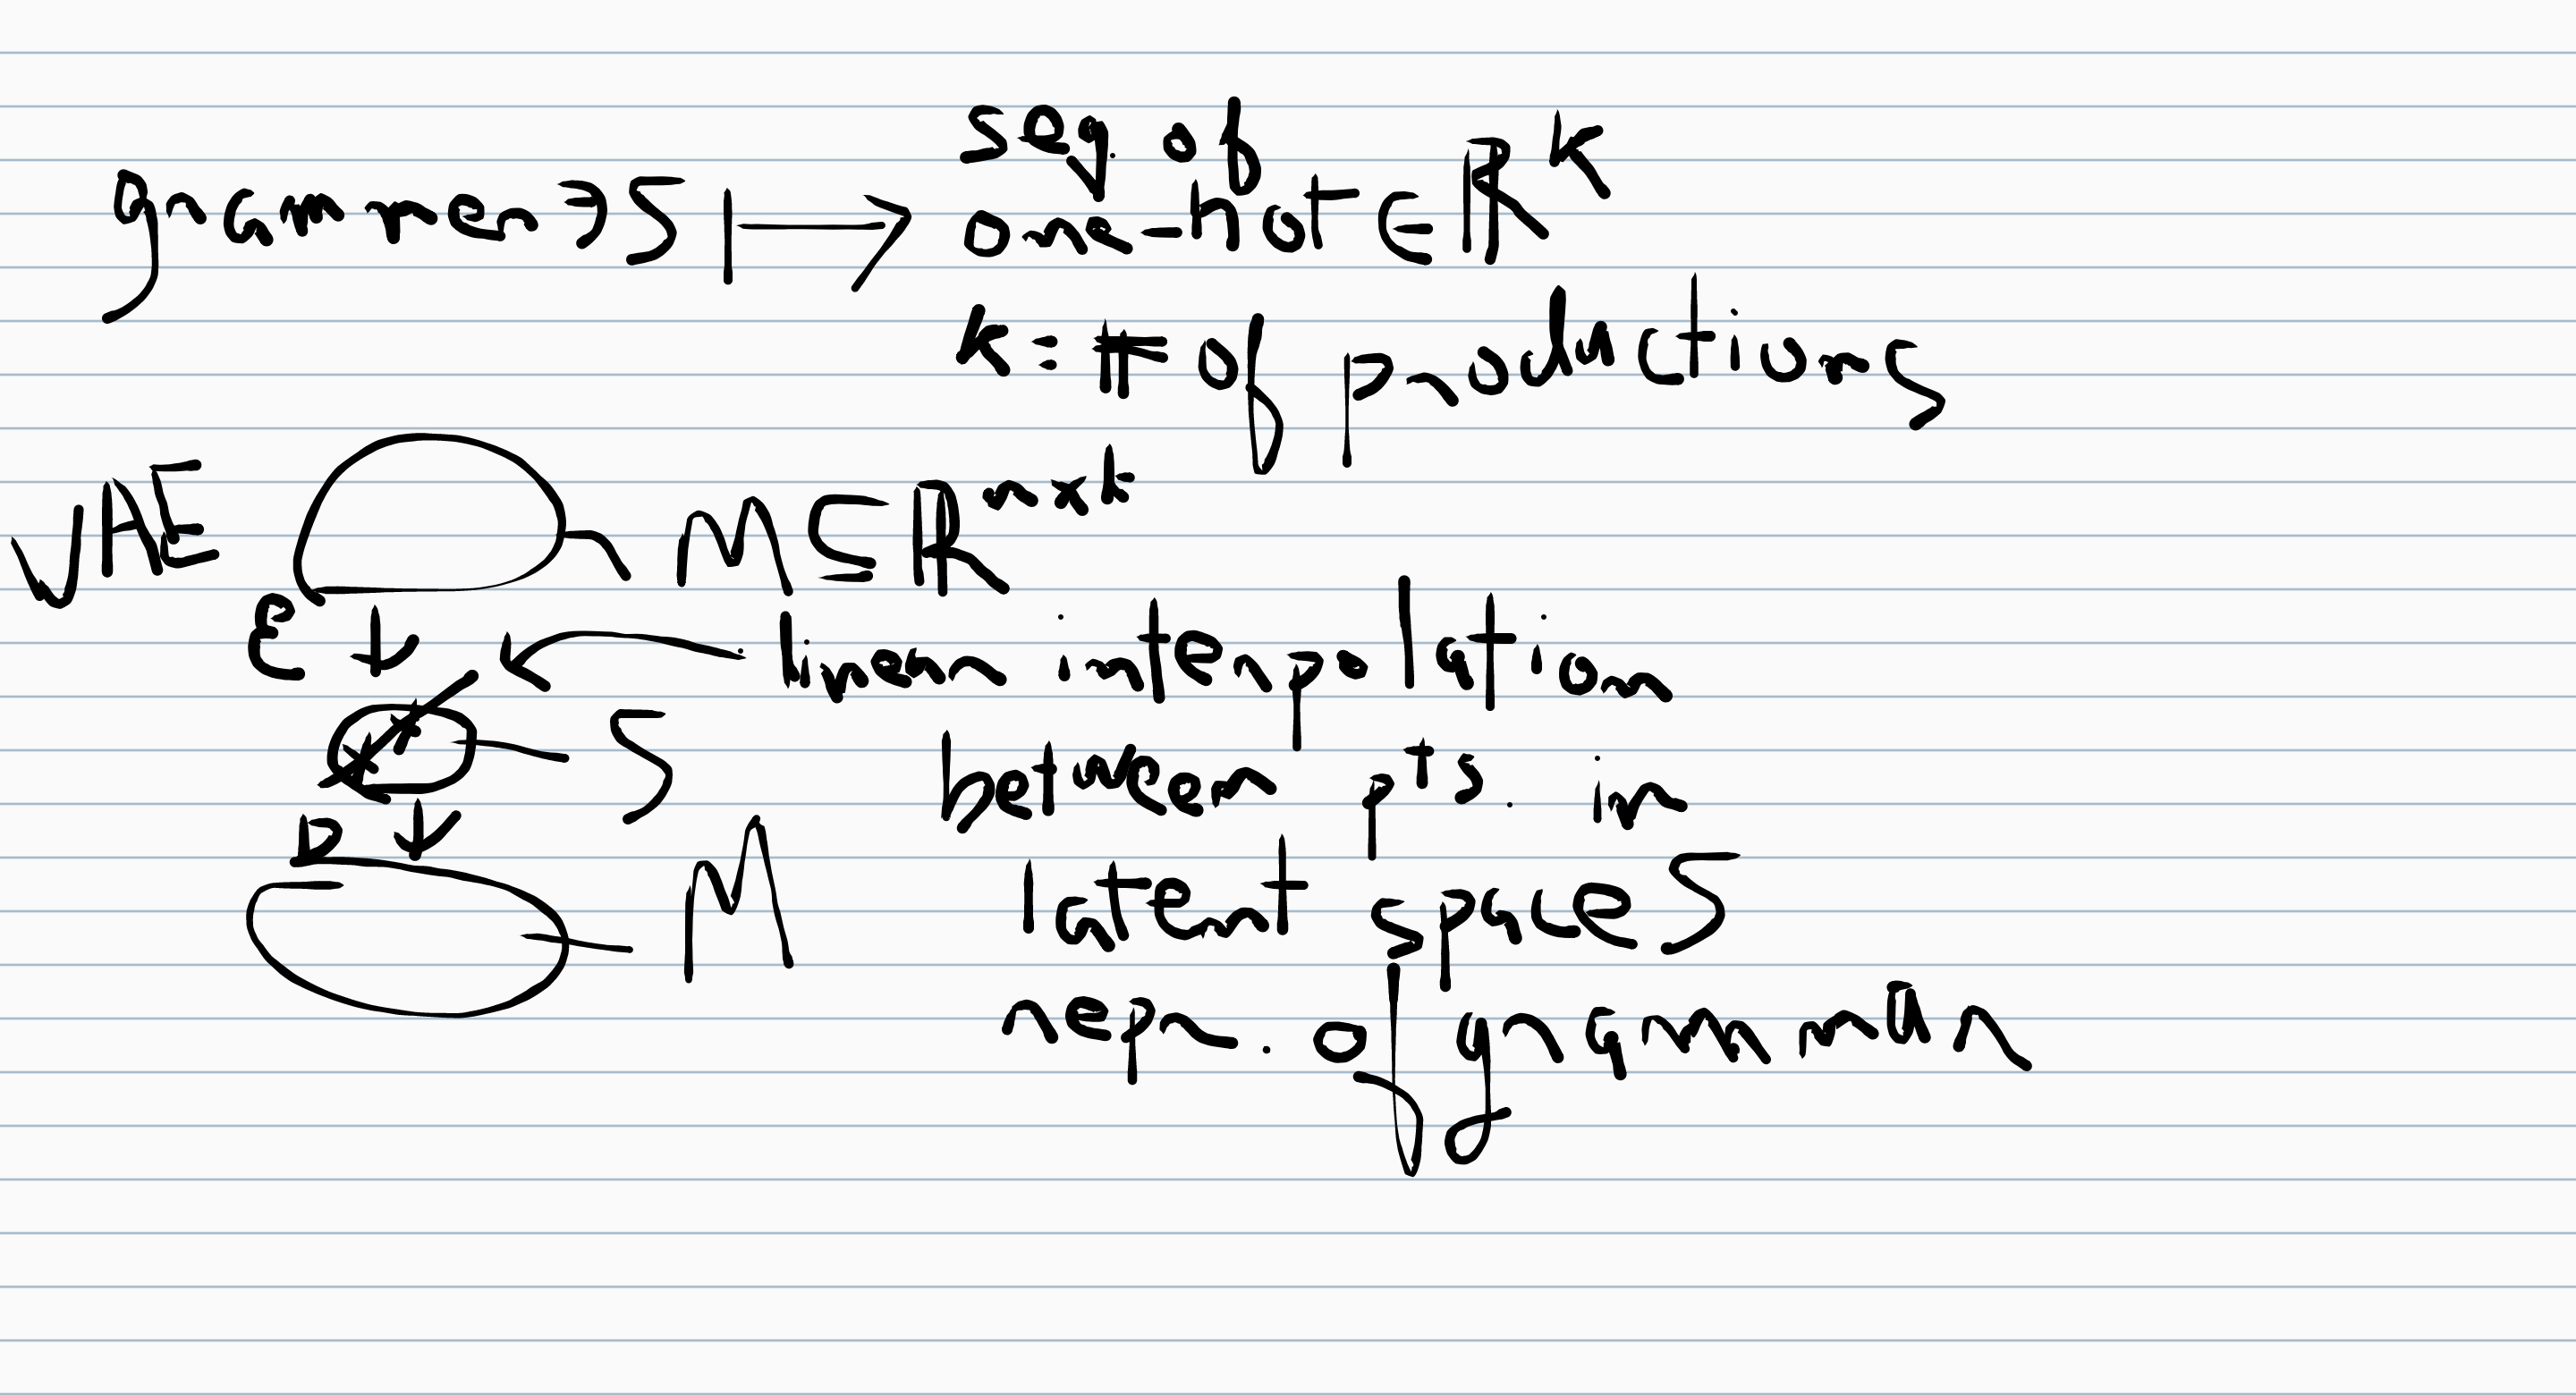 seq. of
grammer ∋ S ↦ one-hot ∈ ℝ^K
k = # of productions
VAE M ⊆ ℝ^{n×k}
ε linear interpolation
S between pts. in
D latent space S
M repr. of grammar